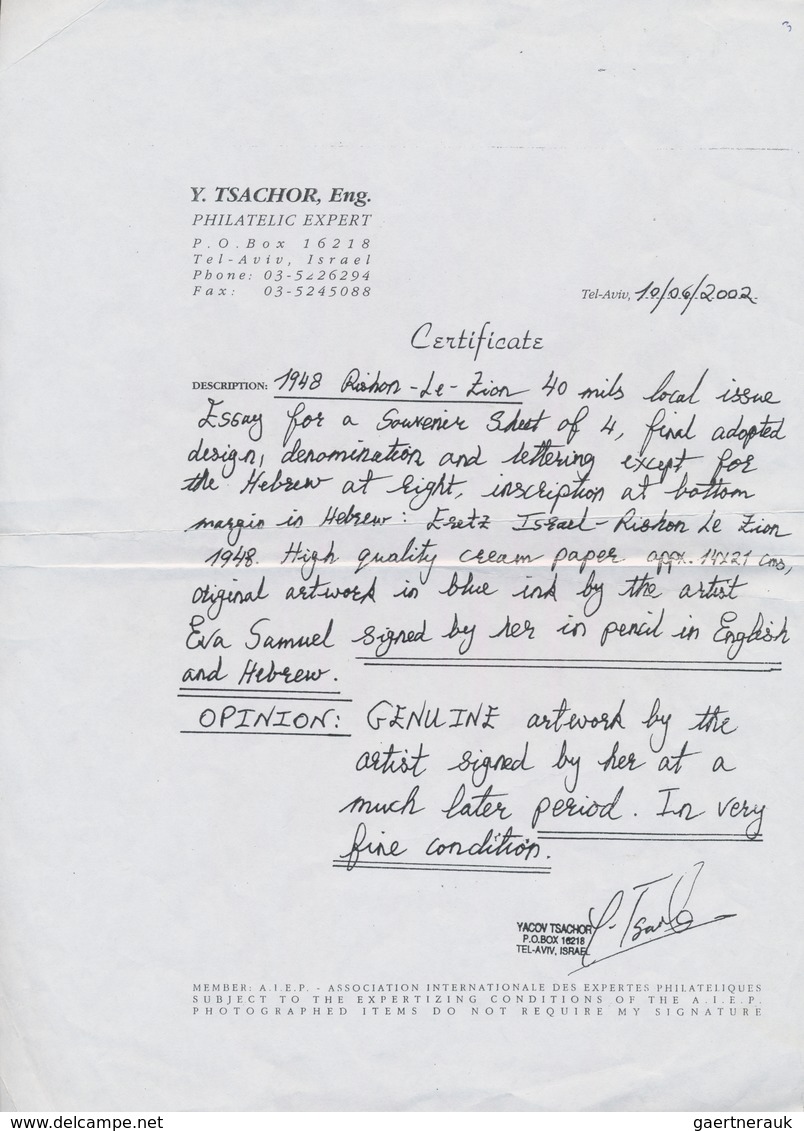 3
Y. TSACHOR, Eng.
PHILATELIC EXPERT
P.O.Box 16218
Tel-Aviv, Israel
Phone: 03-5226294
Fax: 03-5245088
Tel-Aviv, 10/06/2002.
Certificate
DESCRIPTION: 1948 Rishon-Le-Zion 40 mils local issue
Essay for a Souvenir Sheet of 4, final adopted
design, denomination and lettering except for
the Hebrew at right, inscription at bottom
margin in Hebrew: Eretz Israel-Rishon Le Zion
1948. High quality cream paper appx. 14x21 cms,
original artwork in blue ink by the artist
Eva Samuel signed by her in pencil in English
and Hebrew.
OPINION: GENUINE artwork by the
artist signed by her at a
much later period. In very
fine condition.
Y. Tsachor
YACOV TSACHOR
P.O.BOX 16218
TEL-AVIV, ISRAEL
MEMBER: A.I.E.P. - ASSOCIATION INTERNATIONALE DES EXPERTES PHILATELIQUES
SUBJECT TO THE EXPERTIZING CONDITIONS OF THE A.I.E.P.
PHOTOGRAPHED ITEMS DO NOT REQUIRE MY SIGNATURE
www.delcampe.net
gaertnerauk